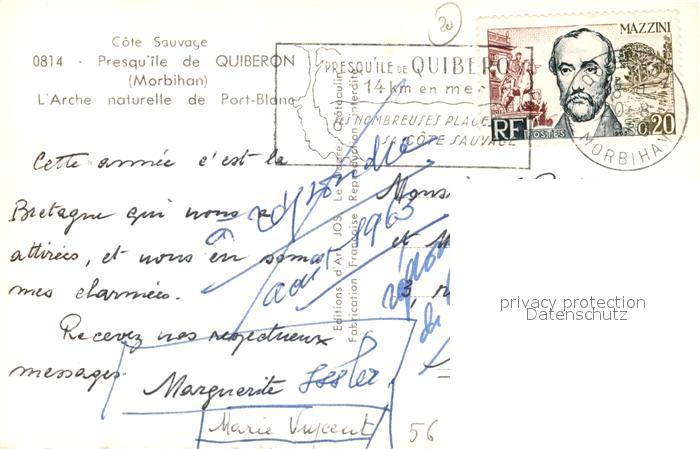 Côte Sauvage
0814 - Presqu'île de QUIBERON
(Morbihan)
L'Arche naturelle de Port-Blanc
20
PRESQU'ILE DE QUIBERO
14 km en mer
SES NOMBREUSES PLAGE
SA CÔTE SAUVAGE
MAZZINI
RF POSTES 0.20
MORBIHAN
Cette année c'est la
Bretagne qui nous a
attirées, et nous en som
mes charmées.
Recevez nos respectueux
messages.
Marguerite Issler
Marie Vincent
à répondre
août 1963
Editions d'Art JOS Le Doaré Châteaulin
Fabrication Française Reproduction Interdite
Monsi
et M
3, r
privacy protection
Datenschutz
56